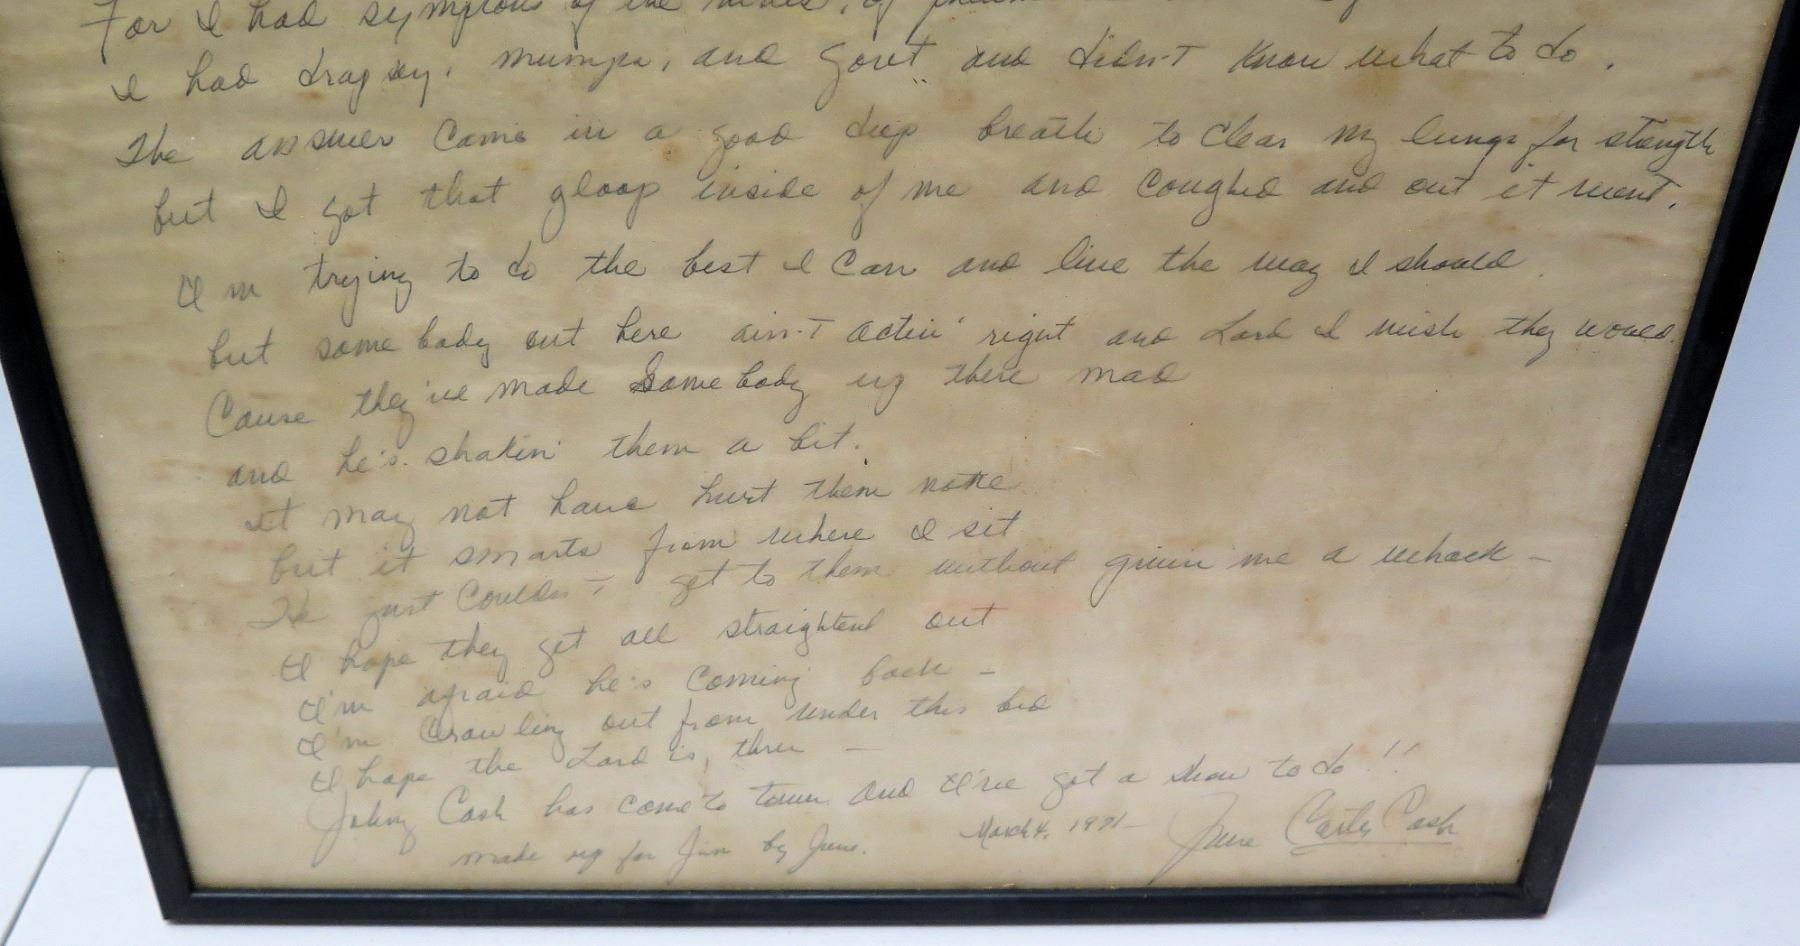 For I had symptoms of the
I had drapsey, mumps, and gout and didn-t know what to do.
The answer came in a good deep breath to clear my lungs for strength
but I got that gloop inside of me and coughed and out it went.
I'm trying to do the best I can and live the way I should.
but some body out here ain-t actin' right and Lord I wish they would.
Cause they've made Somebody up there mad
and he's shakin' them a bit.
It may not have hurt them none
but it smarts from where I sit
He just couldn-t get to them without givin me a whack -
I hope they get all straightend out
I'm afraid he's coming back -
I'm Crawling out from under this bed
I hope the Lord is, thru -
Johny Cash has come to town and I've got a show to do!!
made up for Jim by June. March 4, 1971- June Carter Cash